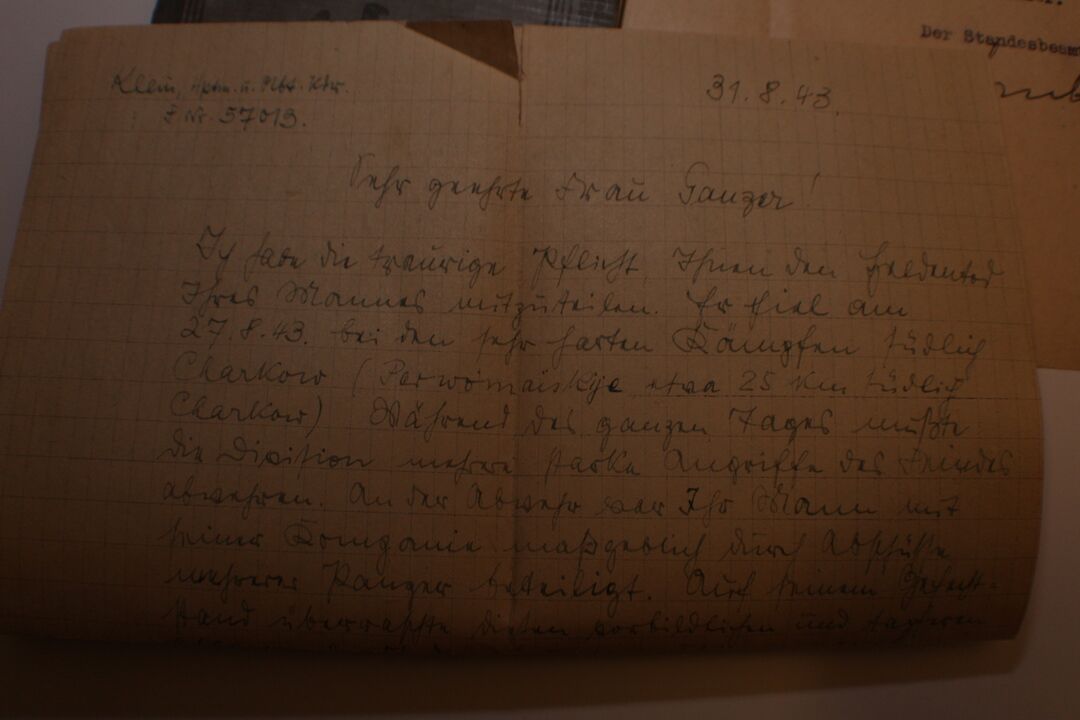 Der Standesbeamt
Klein, Hptm. u. Abt. Kdr.
F Nr. 57013.
31.8.43
Sehr geehrte Frau Ganzer!
Ich habe die traurige Pflicht, Ihnen den Heldentod
Ihres Mannes mitzuteilen. Er fiel am
27.8.43. bei den sehr harten Kämpfen südlich
Charkow (Perwomaiskije etwa 25 km südlich
Charkow) Während des ganzen Tages mußte
die Division mehrere starke Angriffe des Feindes
abwehren. An der Abwehr war Ihr Mann mit
seiner Kompanie maßgeblich durch Abschüsse
mehrerer Panzer beteiligt. Auf seinem Gefecht-
stand überraschte diesen vorbildlichen und tapferen